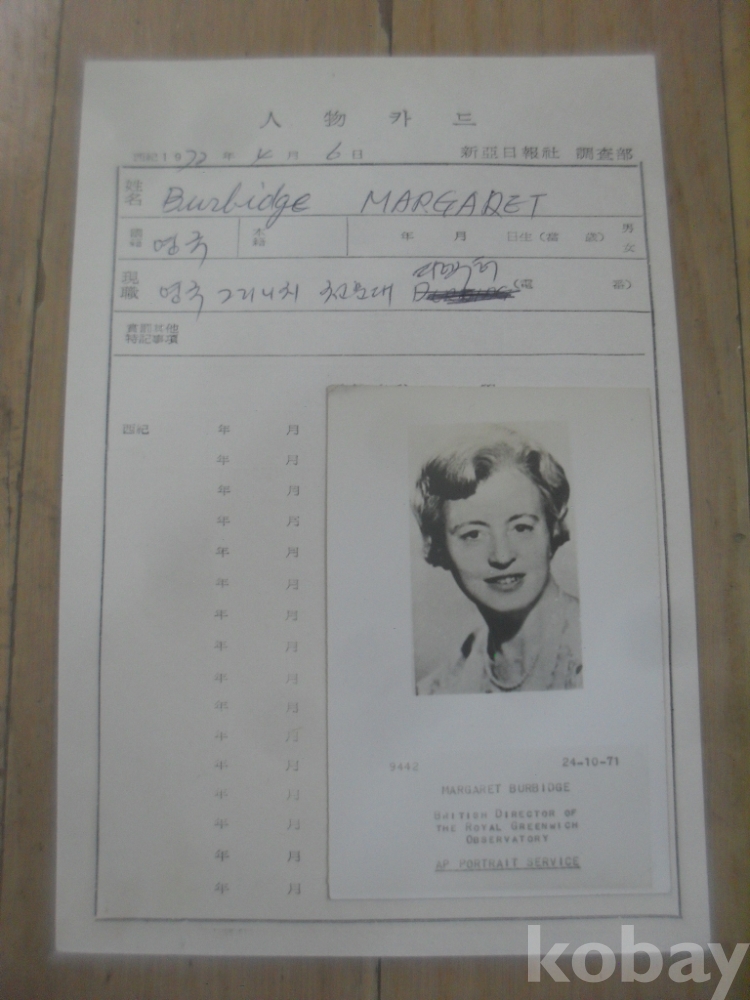 人物카드
西紀1972年 4月 6日 新亞日報社 調査部
姓名 Burbidge MARGARET
國籍 영국 本籍 年 月 日生(當 歲) 男 女
現職 영국 그리니치 천문대 (電 番)
賞罰其他
特記事項
西紀 年 月
年 月
年 月
年 月
年 月
年 月
年 月
年 月
年 月
年 月
年 月
年 月
年 月
年 月
年 月
年 月
9442 24-10-71
MARGARET BURBIDGE
BRITISH DIRECTOR OF
THE ROYAL GREENWICH
OBSERVATORY
AP PORTRAIT SERVICE
kobay